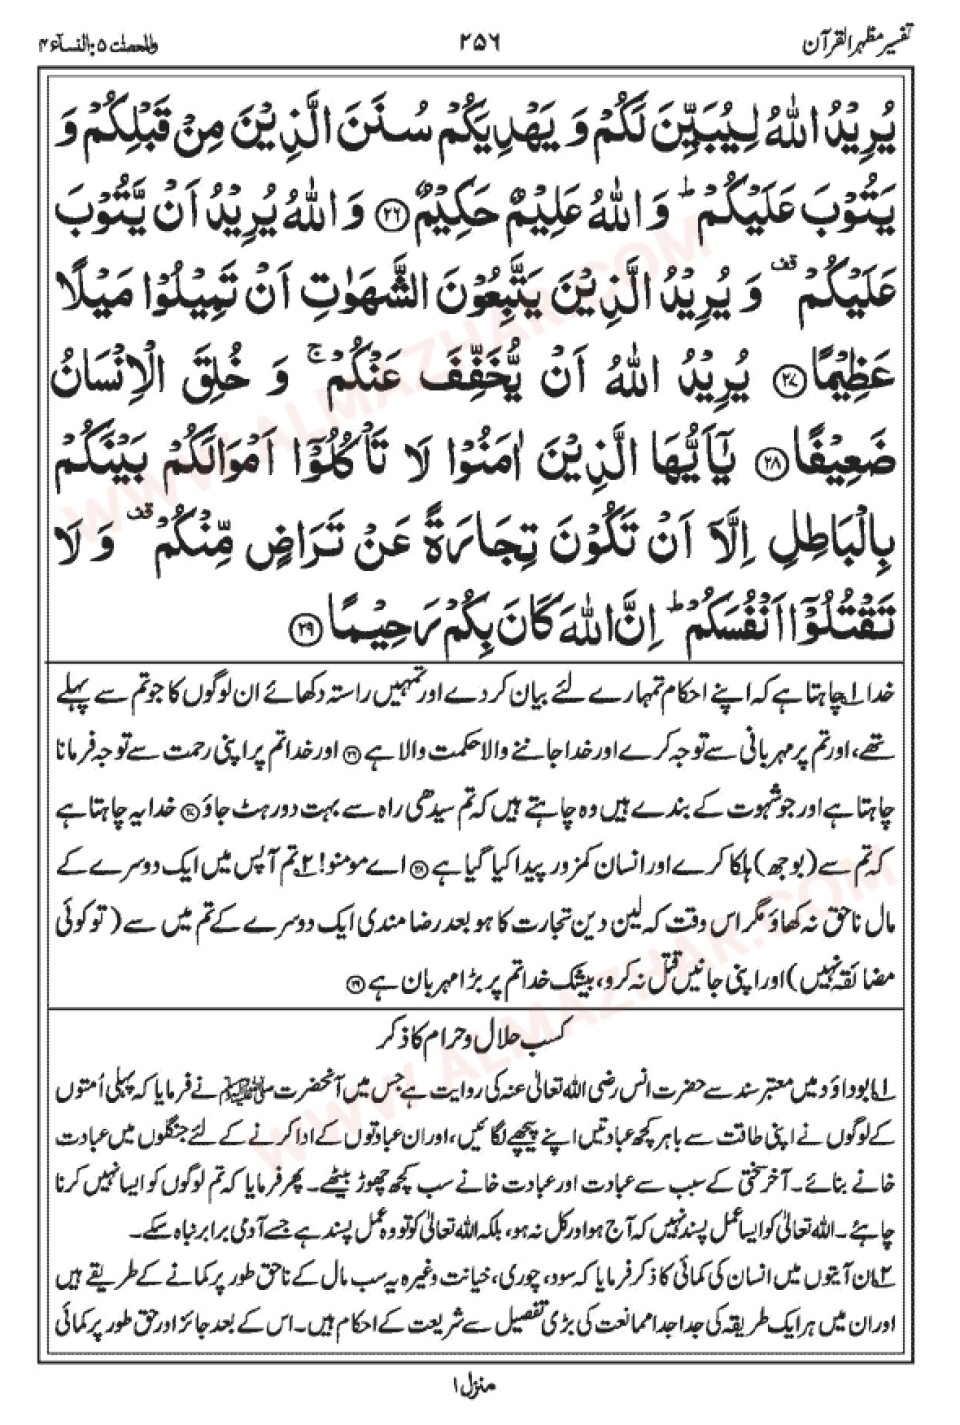 تفسیر مظہر القرآن
۲۵۶
والمحصنٰت ۵: النسآء ۴
يُرِيْدُ اللّٰهُ لِيُبَيِّنَ لَكُمْ وَ يَهْدِيَكُمْ سُنَنَ الَّذِيْنَ مِنْ قَبْلِكُمْ وَ
يَتُوْبَ عَلَيْكُمْ ؕ وَ اللّٰهُ عَلِيْمٌ حَكِيْمٌ ۝۲۶ وَ اللّٰهُ يُرِيْدُ اَنْ يَّتُوْبَ
عَلَيْكُمْ ۫ وَ يُرِيْدُ الَّذِيْنَ يَتَّبِعُوْنَ الشَّهَوٰتِ اَنْ تَمِيْلُوْا مَيْلًا
عَظِيْمًا ۝۲۷ يُرِيْدُ اللّٰهُ اَنْ يُّخَفِّفَ عَنْكُمْ ۚ وَ خُلِقَ الْاِنْسَانُ
ضَعِيْفًا ۝۲۸ يٰۤاَيُّهَا الَّذِيْنَ اٰمَنُوْا لَا تَاْكُلُوْۤا اَمْوَالَكُمْ بَيْنَكُمْ
بِالْبَاطِلِ اِلَّاۤ اَنْ تَكُوْنَ تِجَارَةً عَنْ تَرَاضٍ مِّنْكُمْ ۫ وَ لَا
تَقْتُلُوْۤا اَنْفُسَكُمْ ؕ اِنَّ اللّٰهَ كَانَ بِكُمْ رَحِيْمًا ۝۲۹
خدا ۱؎ چاہتا ہے کہ اپنے احکام تمہارے لئے بیان کر دے اور تمہیں راستہ دکھائے ان لوگوں کا جو تم سے پہلے
تھے، اور تم پر مہربانی سے توجہ کرے اور خدا جاننے والا حکمت والا ہے ۝۲۶ اور خدا تم پر اپنی رحمت سے توجہ فرمانا
چاہتا ہے اور جو شہوت کے بندے ہیں وہ چاہتے ہیں کہ تم سیدھی راہ سے بہت دور ہٹ جاؤ ۝۲۷ خدا یہ چاہتا ہے
کہ تم سے (بوجھ) ہلکا کرے اور انسان کمزور پیدا کیا گیا ہے ۝۲۸ اے مومنو! ۲؎ تم آپس میں ایک دوسرے کے
مال ناحق نہ کھاؤ مگر اس وقت کہ لین دین تجارت کا ہو بعد رضا مندی ایک دوسرے کے تم میں سے (تو کوئی
مضائقہ نہیں) اور اپنی جانیں قتل نہ کرو، بیشک خدا تم پر بڑا مہربان ہے ۝۲۹
کسب حلال و حرام کا ذکر
۱؎ ابوداؤد میں معتبر سند سے حضرت انس رضی اللہ تعالیٰ عنہ کی روایت ہے جس میں آنحضرت ﷺ نے فرمایا کہ پہلی اُمتوں
کے لوگوں نے اپنی طاقت سے باہر کچھ عبادتیں اپنے پیچھے لگائیں، اور ان عبادتوں کے ادا کرنے کے لئے جنگلوں میں عبادت
خانے بنائے۔ آخر سختی کے سبب سے عبادت اور عبادت خانے سب کچھ چھوڑ بیٹھے۔ پھر فرمایا کہ تم لوگوں کو ایسا نہیں کرنا
چاہئے۔ اللہ تعالیٰ کو ایسا عمل پسند نہیں کہ آج ہو اور کل نہ ہو، بلکہ اللہ تعالیٰ کو تو وہ عمل پسند ہے جسے آدمی برابر نباہ سکے۔
۲؎ ان آیتوں میں انسان کی کمائی کا ذکر فرمایا کہ سود، چوری، خیانت وغیرہ یہ سب مال کے ناحق طور پر کمانے کے طریقے ہیں
اور ان میں ہر ایک طریقہ کی جدا جدا ممانعت کی بڑی تفصیل سے شریعت کے احکام ہیں۔ اس کے بعد جائز اور حق طور پر کمائی
منزل ۱
WWW.ALMAZHAR.COM
WWW.ALMAZHAR.COM